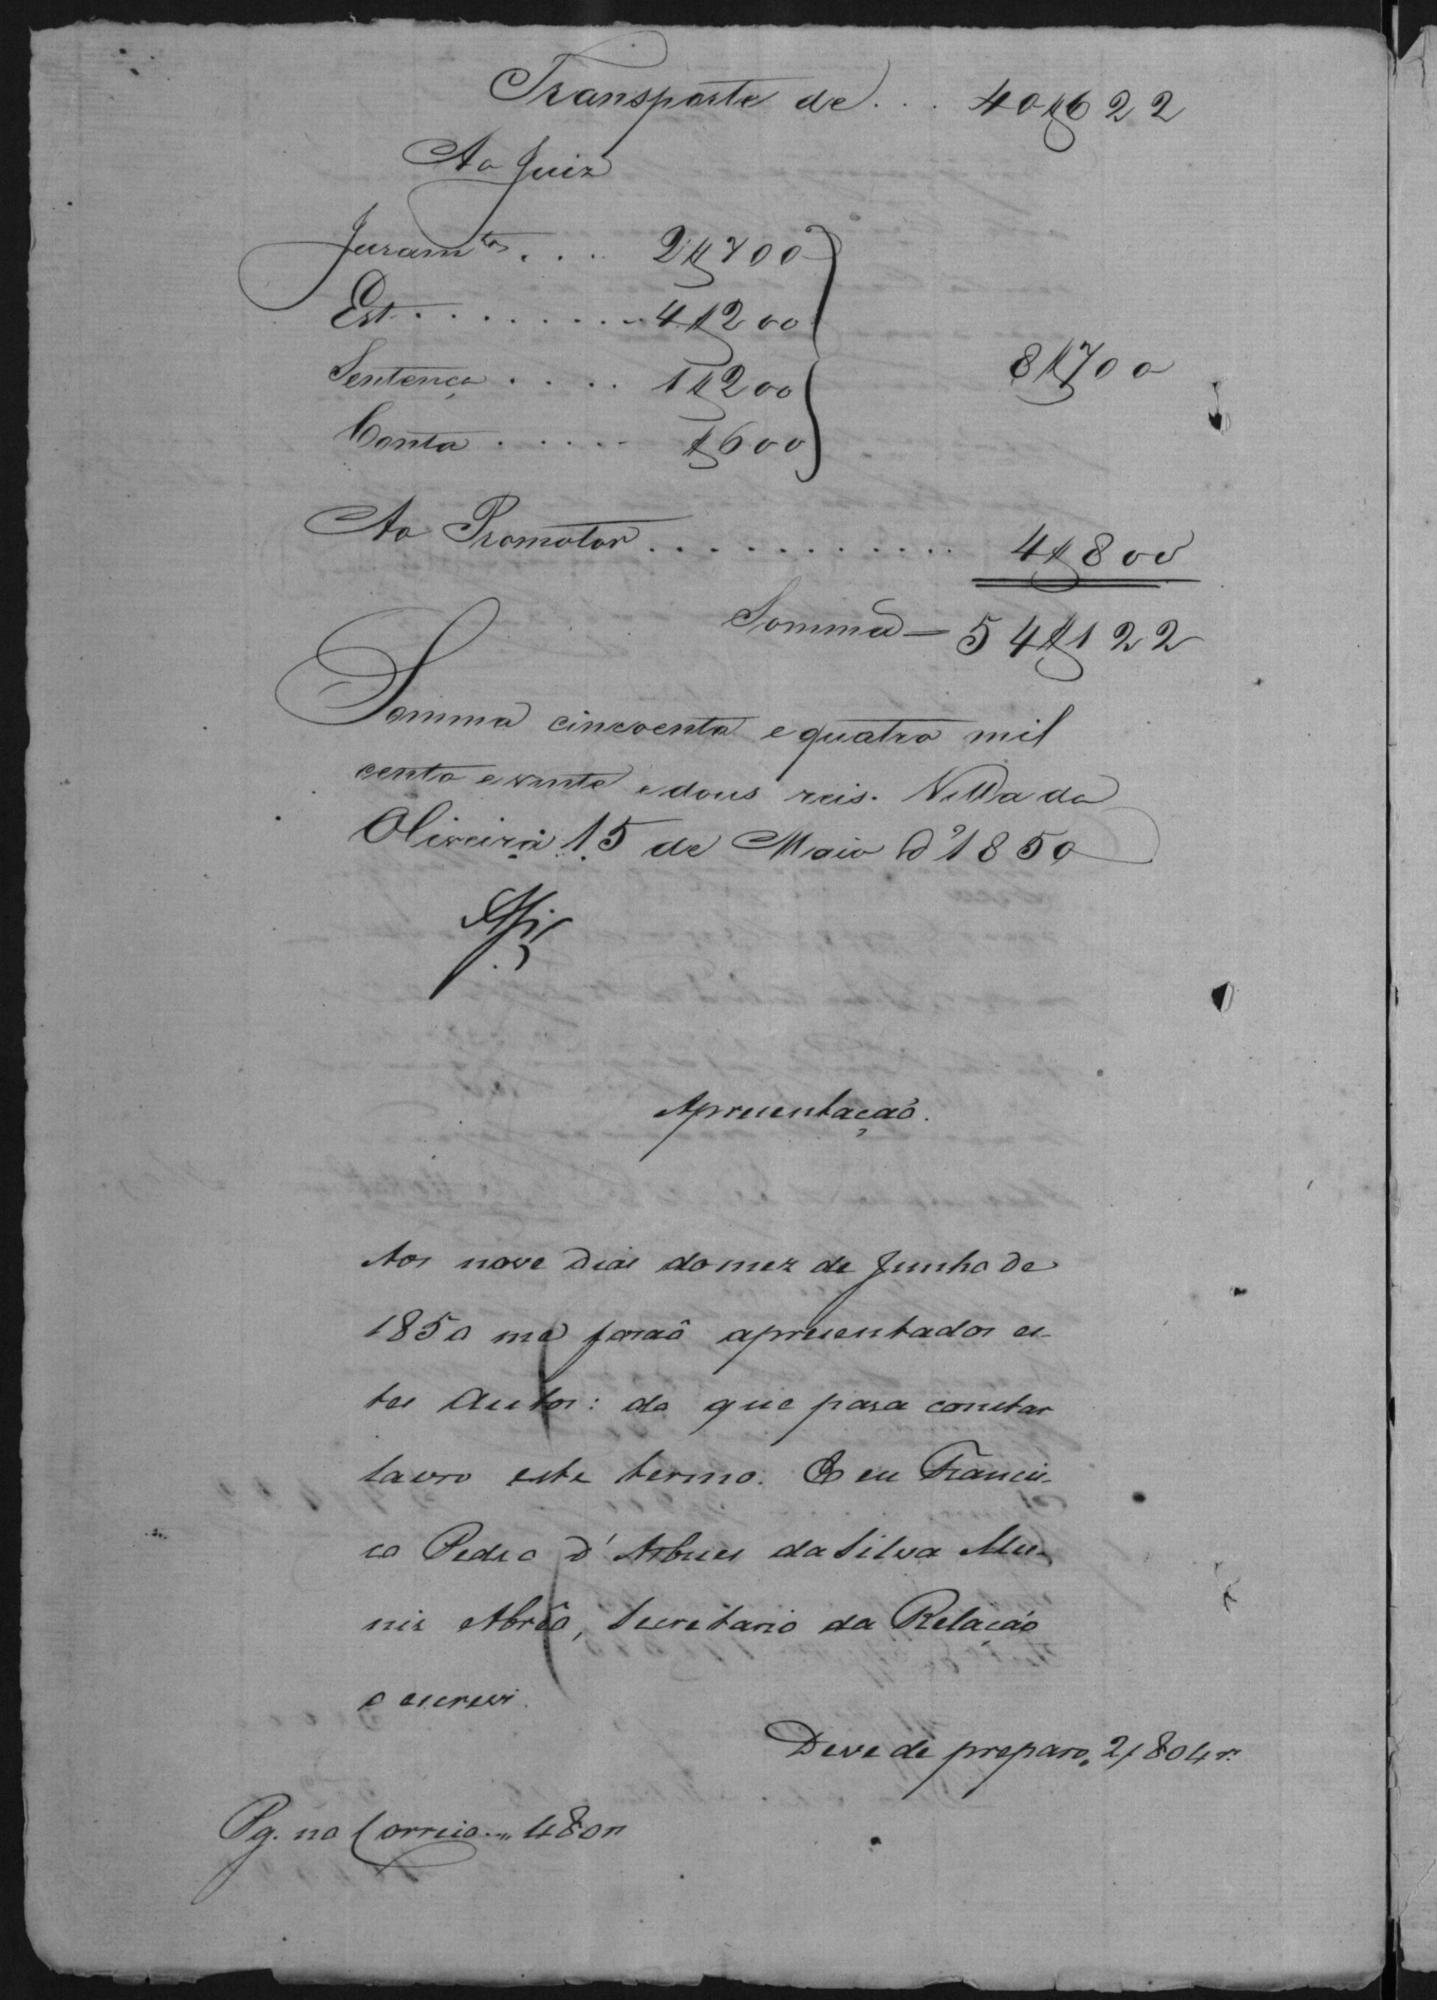 Transporte de . . . 40$622
Ao Juiz
Juramtos . . . 2$700
Est. . . . . . . . . 4$200
8$700
Sentença . . . . . 1$200
Conta . . . . . . $600
Ao Promotor . . . . . . . . . . . . 4$800
Somma — 54$122
Somma cincoenta e quatro mil
cento e vinte e dous reis. Villa da
Oliveira 15 de Maio d'1850
Apresentação.
Aos nove dias do mez de Junho de
1850 me foraõ apresentados es-
tes autos: do que para constar
lavro este termo. E eu Francis-
co Pedro d'Arbues da Silva Mu-
nis Abrêo, Secretario da Relação
o escrevi.
Deve de preparo. 2$804 rs.
Pg. no Correio.. 480 rs